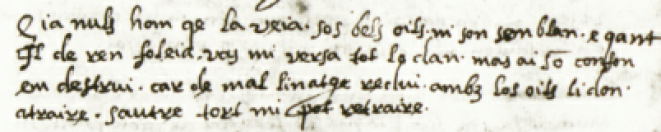 Qia nuls hom qe la veia. sos bels oils. ni son senblan. e qant
Il de ren foleia. vas mi versa tot lo dan. mas ai so conson
em destrui. car de mal linatge reclui. ambs los oils li don.
atraire. sautre tort mi pot retraire.